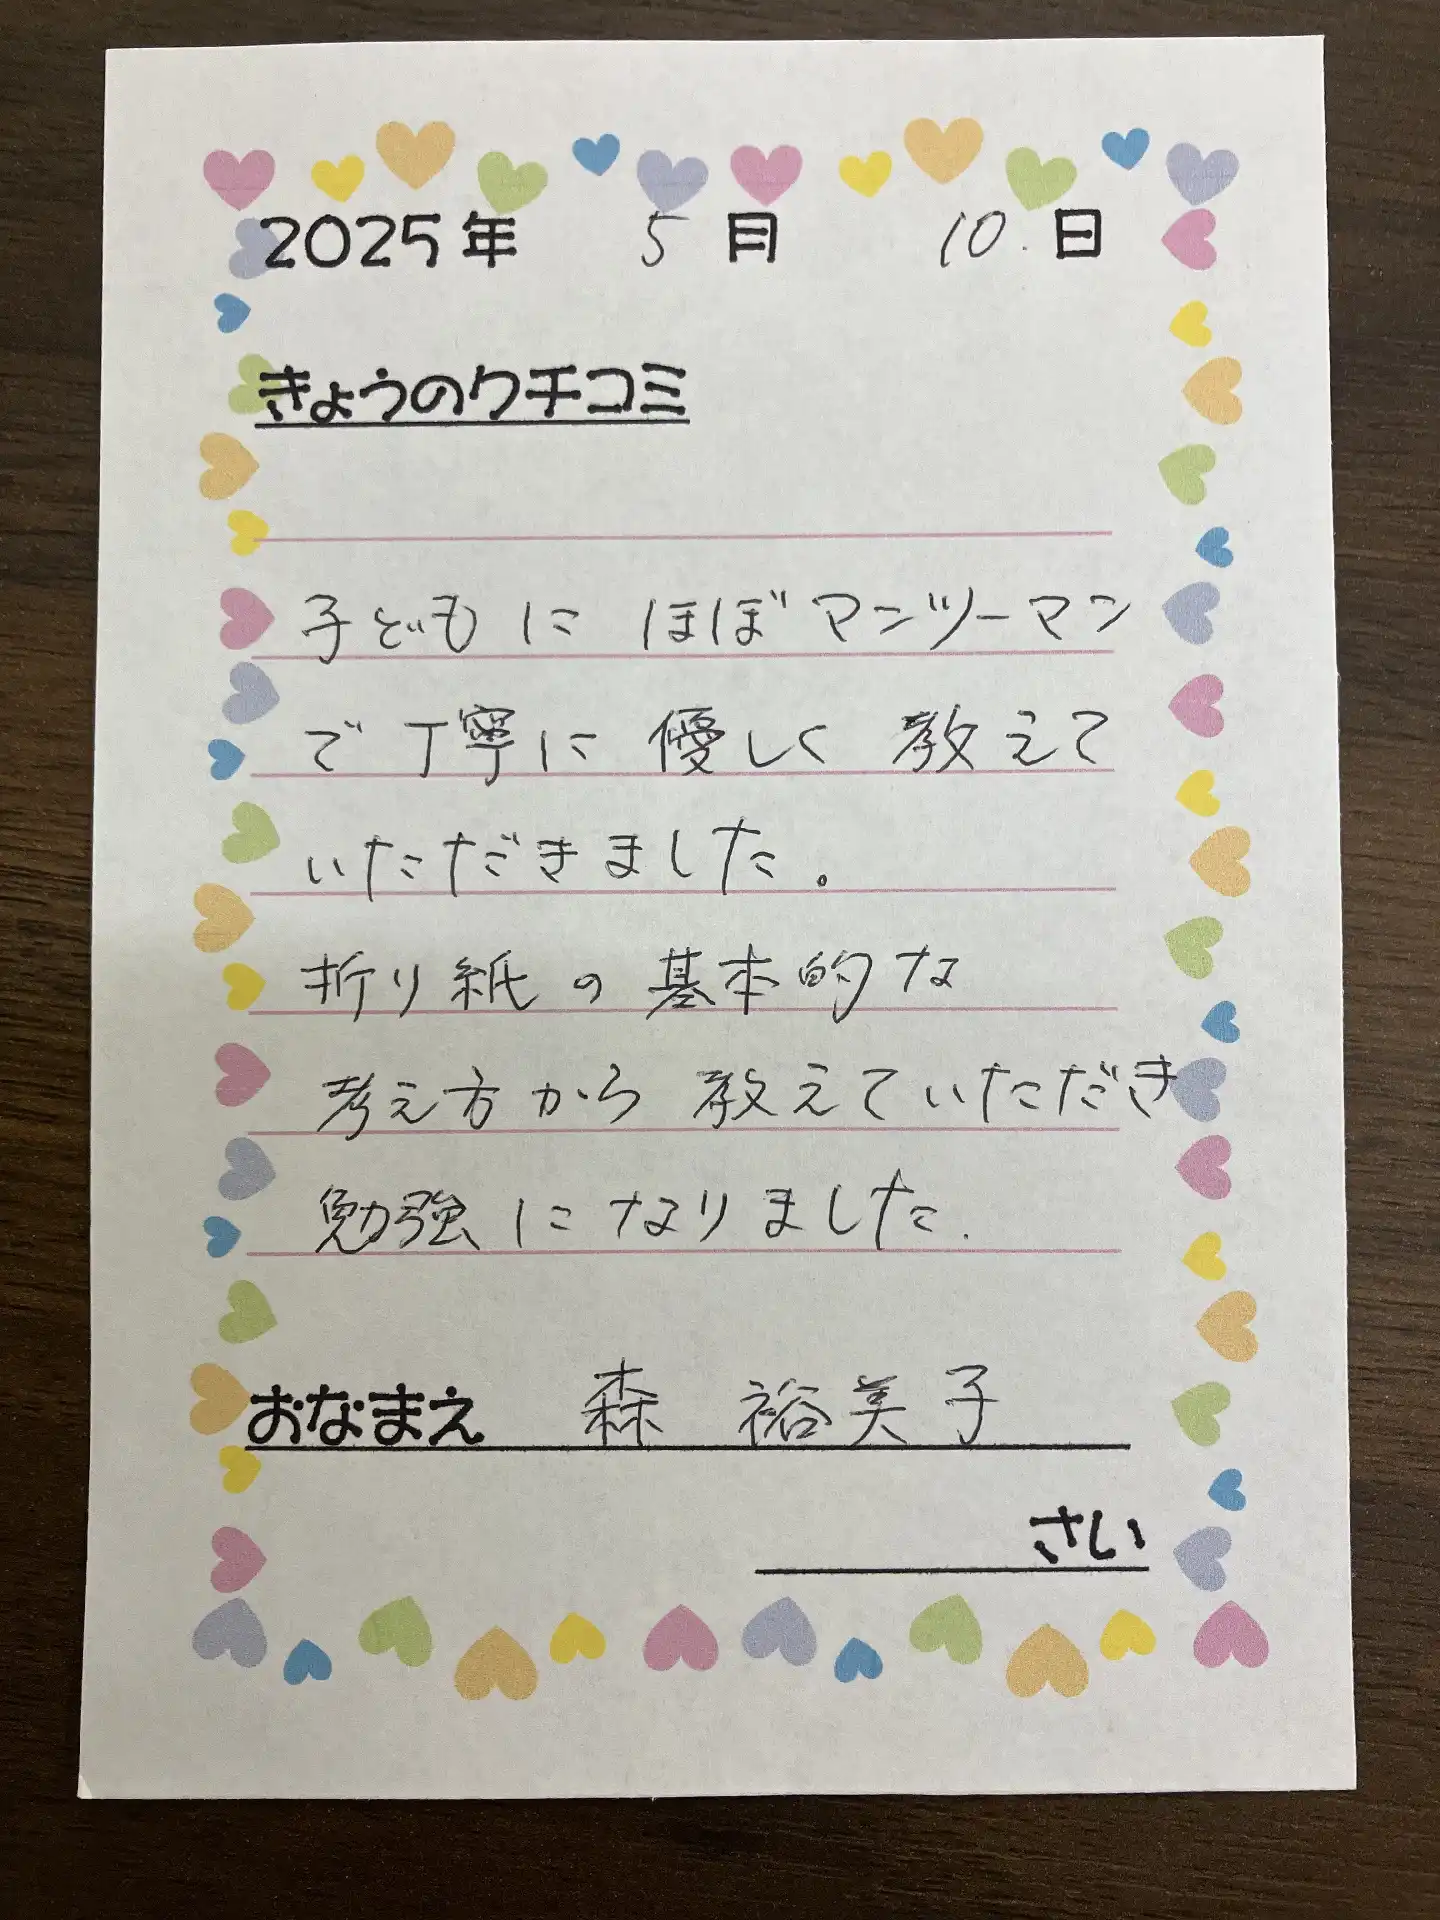 2025年 5月 10.日
きょうのクチコミ
子どもに ほぼマンツーマン
で丁寧に 優しく 教えて
いただきました。
折り紙の基本的な
考え方から 教えていただき
勉強になりました.
おなまえ 森 裕美子
さい